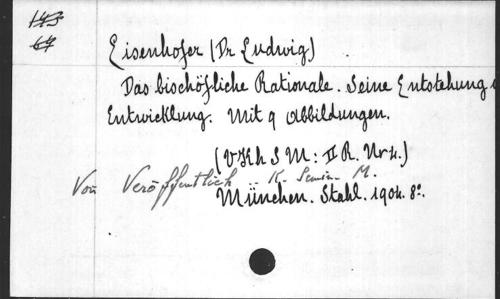 143
64
Eisenhofer (Dr Ludwig)
Das bischöfliche Rationale. Seine Entstehung u
Entwicklung. Mit 9 Abbildungen.
(VKhSM: II R. Nr 4.)
Von Veröffentlich K. Semin. M.
München. Stahl. 1904. 8°.